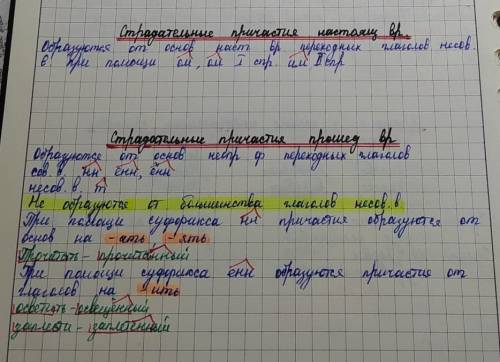 Страдательные причастия настоящ вр.
Образуются от основ наст вр. переходных глаголов несов.
в при помощи ом, ем I спр. им II спр
Страдательные причастия прошед вр
Образуются от основ непр ф переходных глаголов
сов в. нн ённ, енн
несов. в. т
Не образуются от большинства глаголов несов. в
При помощи суффикса нн причастия образуются от
основ на -ать -ять
Прочитать - прочитанный
При помощи суффикса енн образуются причастия от
глаголов на -ить
осветить - освещенный
заплести - заплетенный